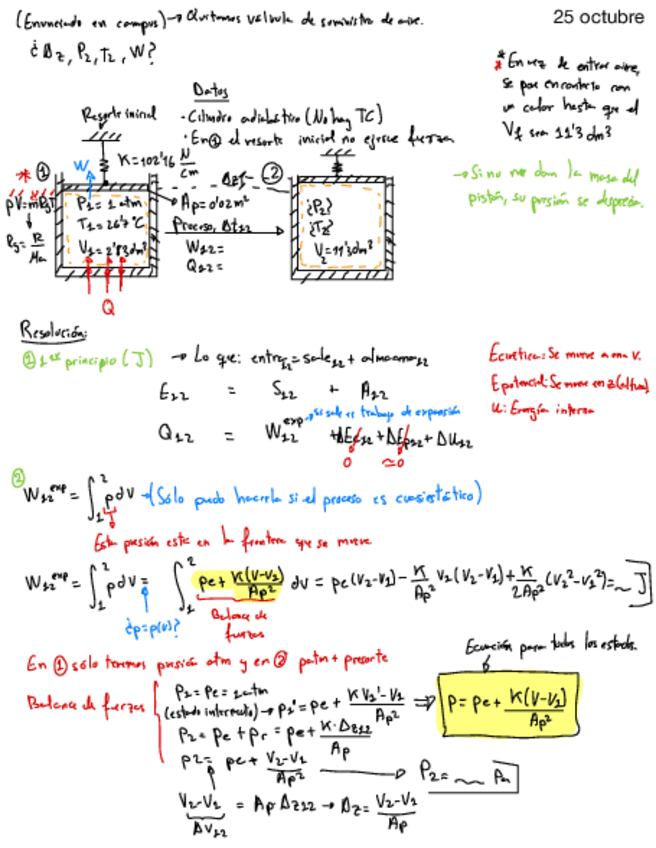 (Enunciado en campus) → Quitamos válvula de suministro de aire.
25 octubre
¿Δz, P2, T2, W?
* En vez de entrar aire,
se pone en contacto con
un calor hasta que el
Vf sea 11'3 dm³
Datos
· Cilindro adiabático (No hay TC)
· En ① el resorte inicial no ejerce fuerza
Resorte inicial
K = 102'16 N/cm
→ Si no nos dan la masa del
pistón, su presión se desprecia.
* ①
W
Δz
②
pV = mRgT
Rg = R/Ma
P1 = 1 atm
T1 = 26'7 °C
V1 = 2'83 dm³
Ap = 0'02 m²
Proceso, Δt12
W12 =
Q12 =
¿P2?
¿T2?
V2 = 11'3 dm³
Q
Resolución:
① 1er principio (J) → Lo que: entra12 = sale12 + almacena12
E12 = S12 + A12
Q12 = W12^exp + ΔEc12 + ΔEp12 + ΔU12
→ si sale es trabajo de expansión
0 ≃0
Ecinética: Se mueve a una v.
Epotencial: Se mueve en z (altura)
u: Energía interna
②
W12^exp = ∫₁² p dV → (Sólo puedo hacerla si el proceso es cuasiestático)
Esta presión está en la frontera que se mueve
W12^exp = ∫₁² p dV = ∫₁² pe + K(V-V1)/Ap² dV = pe(V2-V1) - K/Ap² V1(V2-V1) + K/2Ap² (V2²-V1²) = ~ J
¿p=p(V)?
Balance de
fuerzas
En ① sólo tenemos presión atm y en ② patm + presorte
Ecuación para todos los estados.
Balance de fuerzas
P1 = Pe = 1 atm
(estado intermedio) → p1' = pe + K V1'-V1/Ap² ⇒ p = pe + K(V-V1)/Ap²
P2 = pe + pr = pe + K·Δz12/Ap
p2 = pe + V2-V1/Ap² → P2 = ~ Pa
V2-V1 = Ap·Δz12 → Δz = V2-V1/Ap
ΔV12